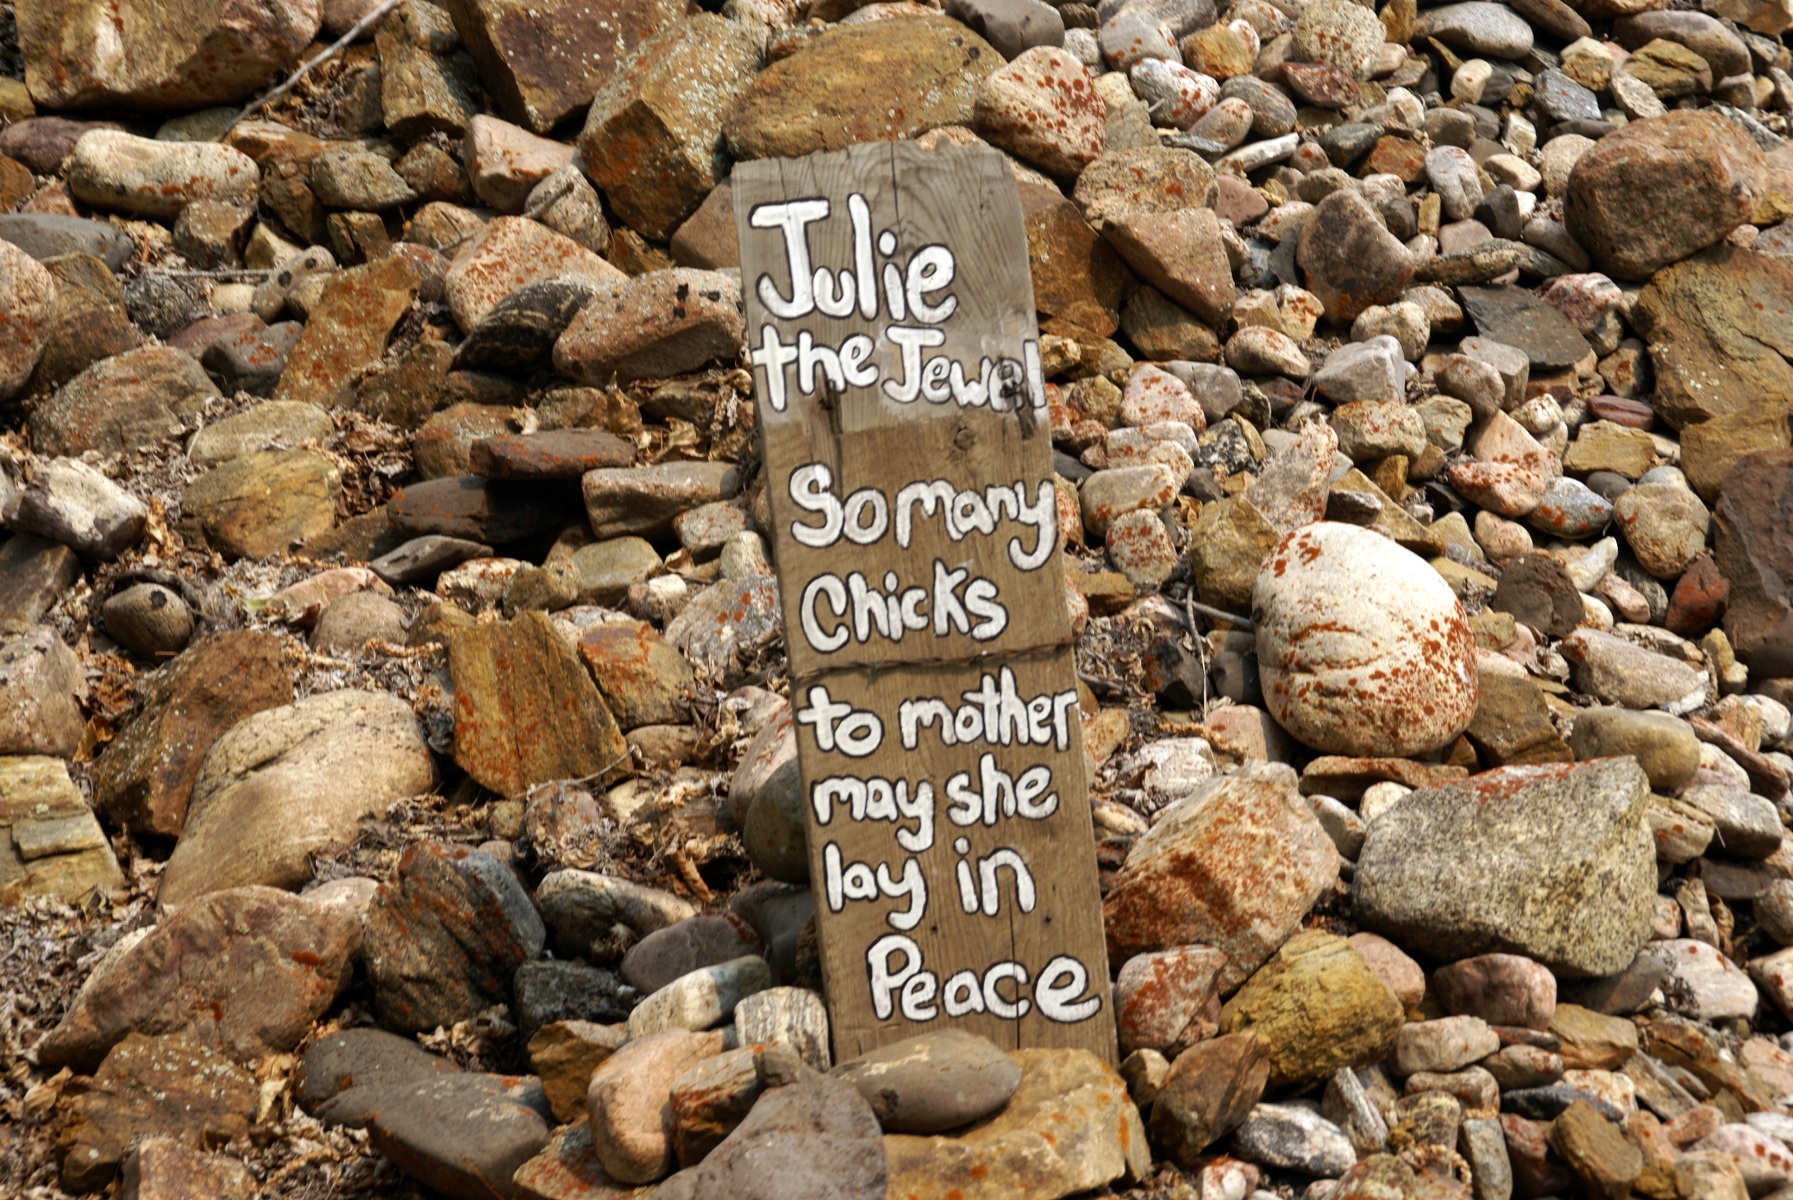 Julie
the Jewel
So many
Chicks
to mother
may she
lay in
Peace